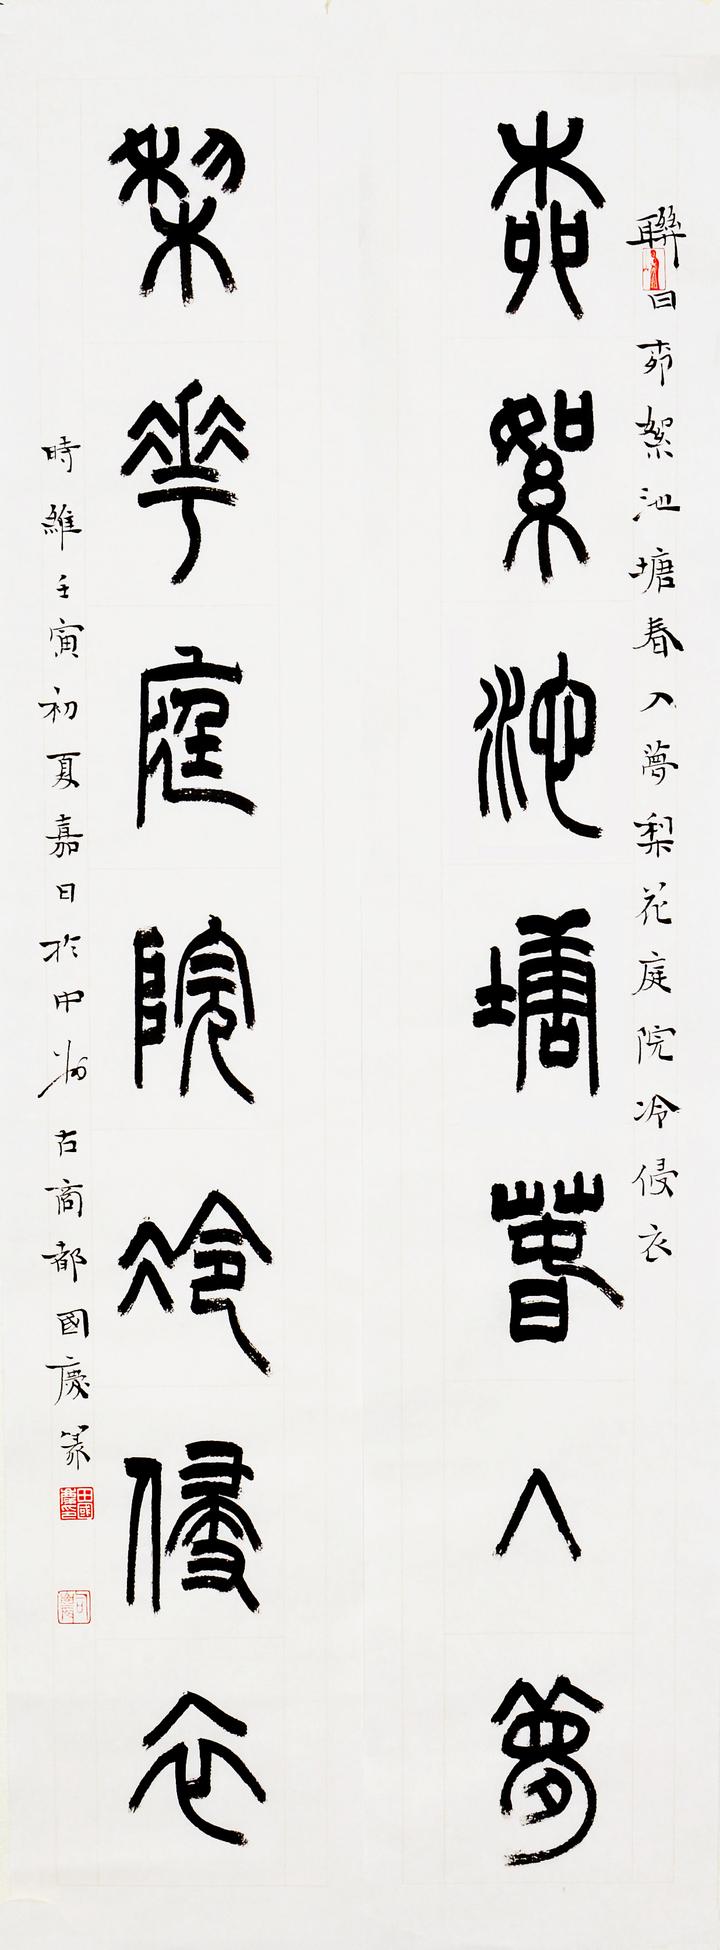 聯曰柳絮池塘春入夢梨花庭院冷侵衣
柳絮池塘春入夢
梨花庭院冷侵衣
時維壬寅初夏嘉日於中州古商都國慶篆
田國慶印